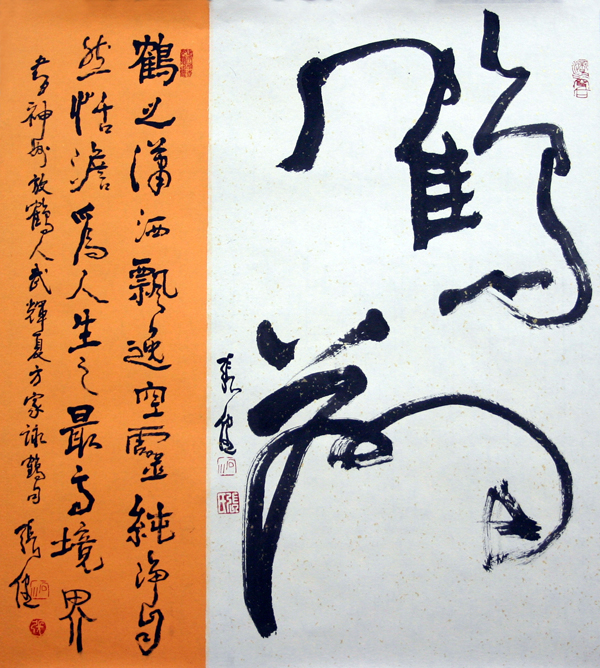 鶴
張健
鶴之瀟洒飄逸空靈純净自
然恬澹爲人生之最高境界
書神州放鶴人武輝夏方家詠鶴句
張健